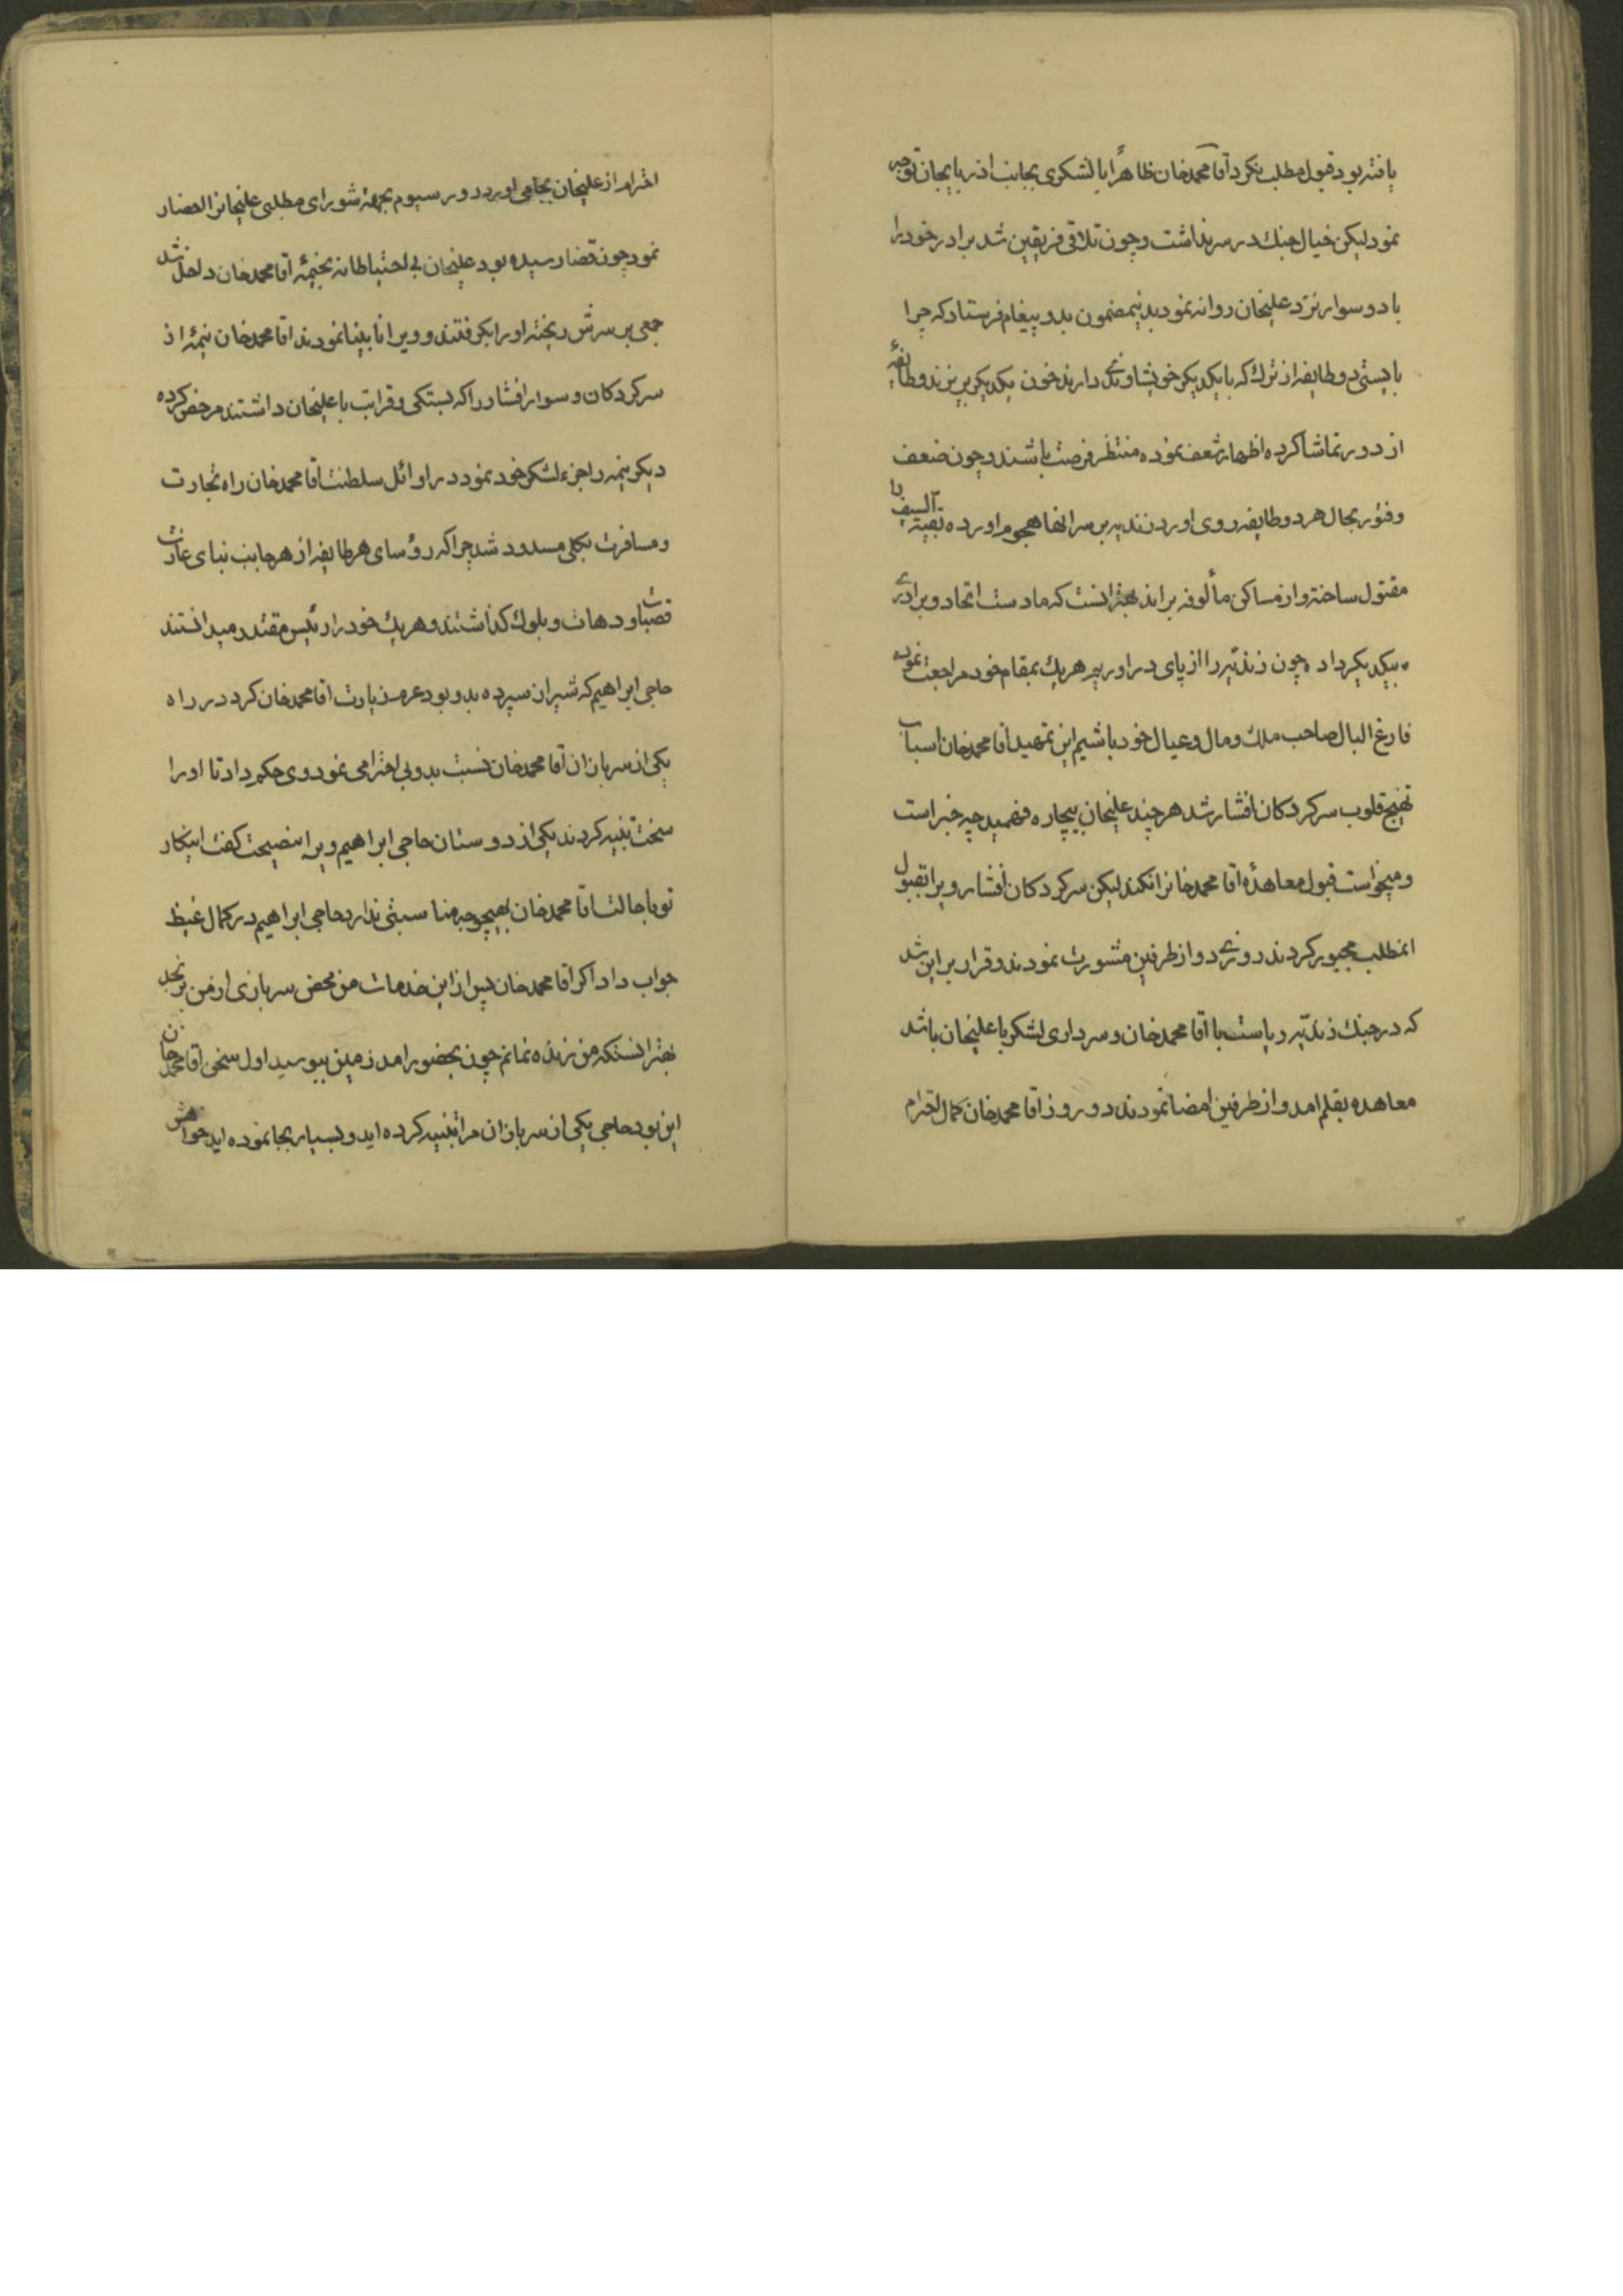 یافته بود قبول مطلب نکرد آقا محمدخان ظاهراً با لشکری بجانب اذربایجان توجه
نمود لیکن خیال جنك در سر نداشت و چون تلاقی فریقین شد برادر خود را
با دو سوار نزد علیخان روانه نمود بدینمضمون بدو پیغام فرستاد که چرا
بایستی دو طایفه از ترك که با یکدیکر خویشاوندی دارند خون یکدیکر بریزند و طائفۀ
از دور تماشا کرده اظهار شعف نموده منتظر فرصت باشند و چون ضعف
و فتور بحال هر دو طایفه روی اورد زندیه بر سر انها هجوم اورده بقیة السیف را
مقتول ساخته و از مساکن مألوفه براند بهتر انست که ما دست اتحاد و برادری
بیکدیکر داده چون زندیّه را از پای دراوریم هریك بمقام خود مراجعت نموده
فارغ البال صاحب ملك و مال و عیال خود باشیم این تمهید اقا محمدخان اسباب
تهییج قلوب سرکردکان افشار شد هر چند علیخان بیچاره فهمید چه خبر است
و میخواست قبول معاهدۀ اقا محمدخانرا نکند لیکن سرکردکان افشار ویرا بقبول
انمطلب مجبور کردند روزی دو از طرفین مشورت نمودند و قرار بر این شد
که در جنك زندیّه ریاست با آقا محمدخان و سرداری لشکر با علیخان باشد
معاهده بقلم امد و از طرفین امضا نمودند دو روز اقا محمدخان کمال احترام
احترام از علیخان بجا می اورد روز سیوم بجهة شورای مطلبی علیخانرا احضار
نمود چون قضا رسیده بود علیخان بی احتیاطانه بخیمۀ آقا محمدخان داخل شد
جمعی بر سرش ریخته اورا بکرفتند و ویرا نابینا نمودند اقا محمدخان نیمۀ از
سرکردکان و سوار افشار را که بستکی و قرابت با علیخان داشتند مرخص کرده
دیکر نیمه را جزء لشکر خود نمود در اوائل سلطنت اقا محمدخان راه تجارت
و مسافرت بکلی مسدود شد چرا که رؤسای هر طایفه از هر جانب بنای غارت
قصبات و دهات و بلوك کذاشتند و هریك خود را رئیس مقتدر میدانستند
حاجی ابراهیم که شیراز سپرده بدو بود عزم زیارت اقا محمدخان کرد در راه
یکی از سربازان آقا محمدخان نسبت بدو بی احترامی نمود وی حکم داد تا اورا
سخت تنبیه کردند یکی از دوستان حاجی ابراهیم ویرا نصیحت کفت اینکار
تو با حالت اقا محمدخان بهیچوجه مناسبتی ندارد حاجی ابراهیم در کمال غیظ
جواب داد اکر اقا محمدخان پس از این خدمات من محض سربازی از من برنجد
بهتر انستکه من زنده نمانم چون بحضور امد زمین ببوسید اول سخن اقا محمدخان
این بود حاجی یکی از سربازان مرا تنبیه کرده اید و بسیار بجا نموده اید خواهش